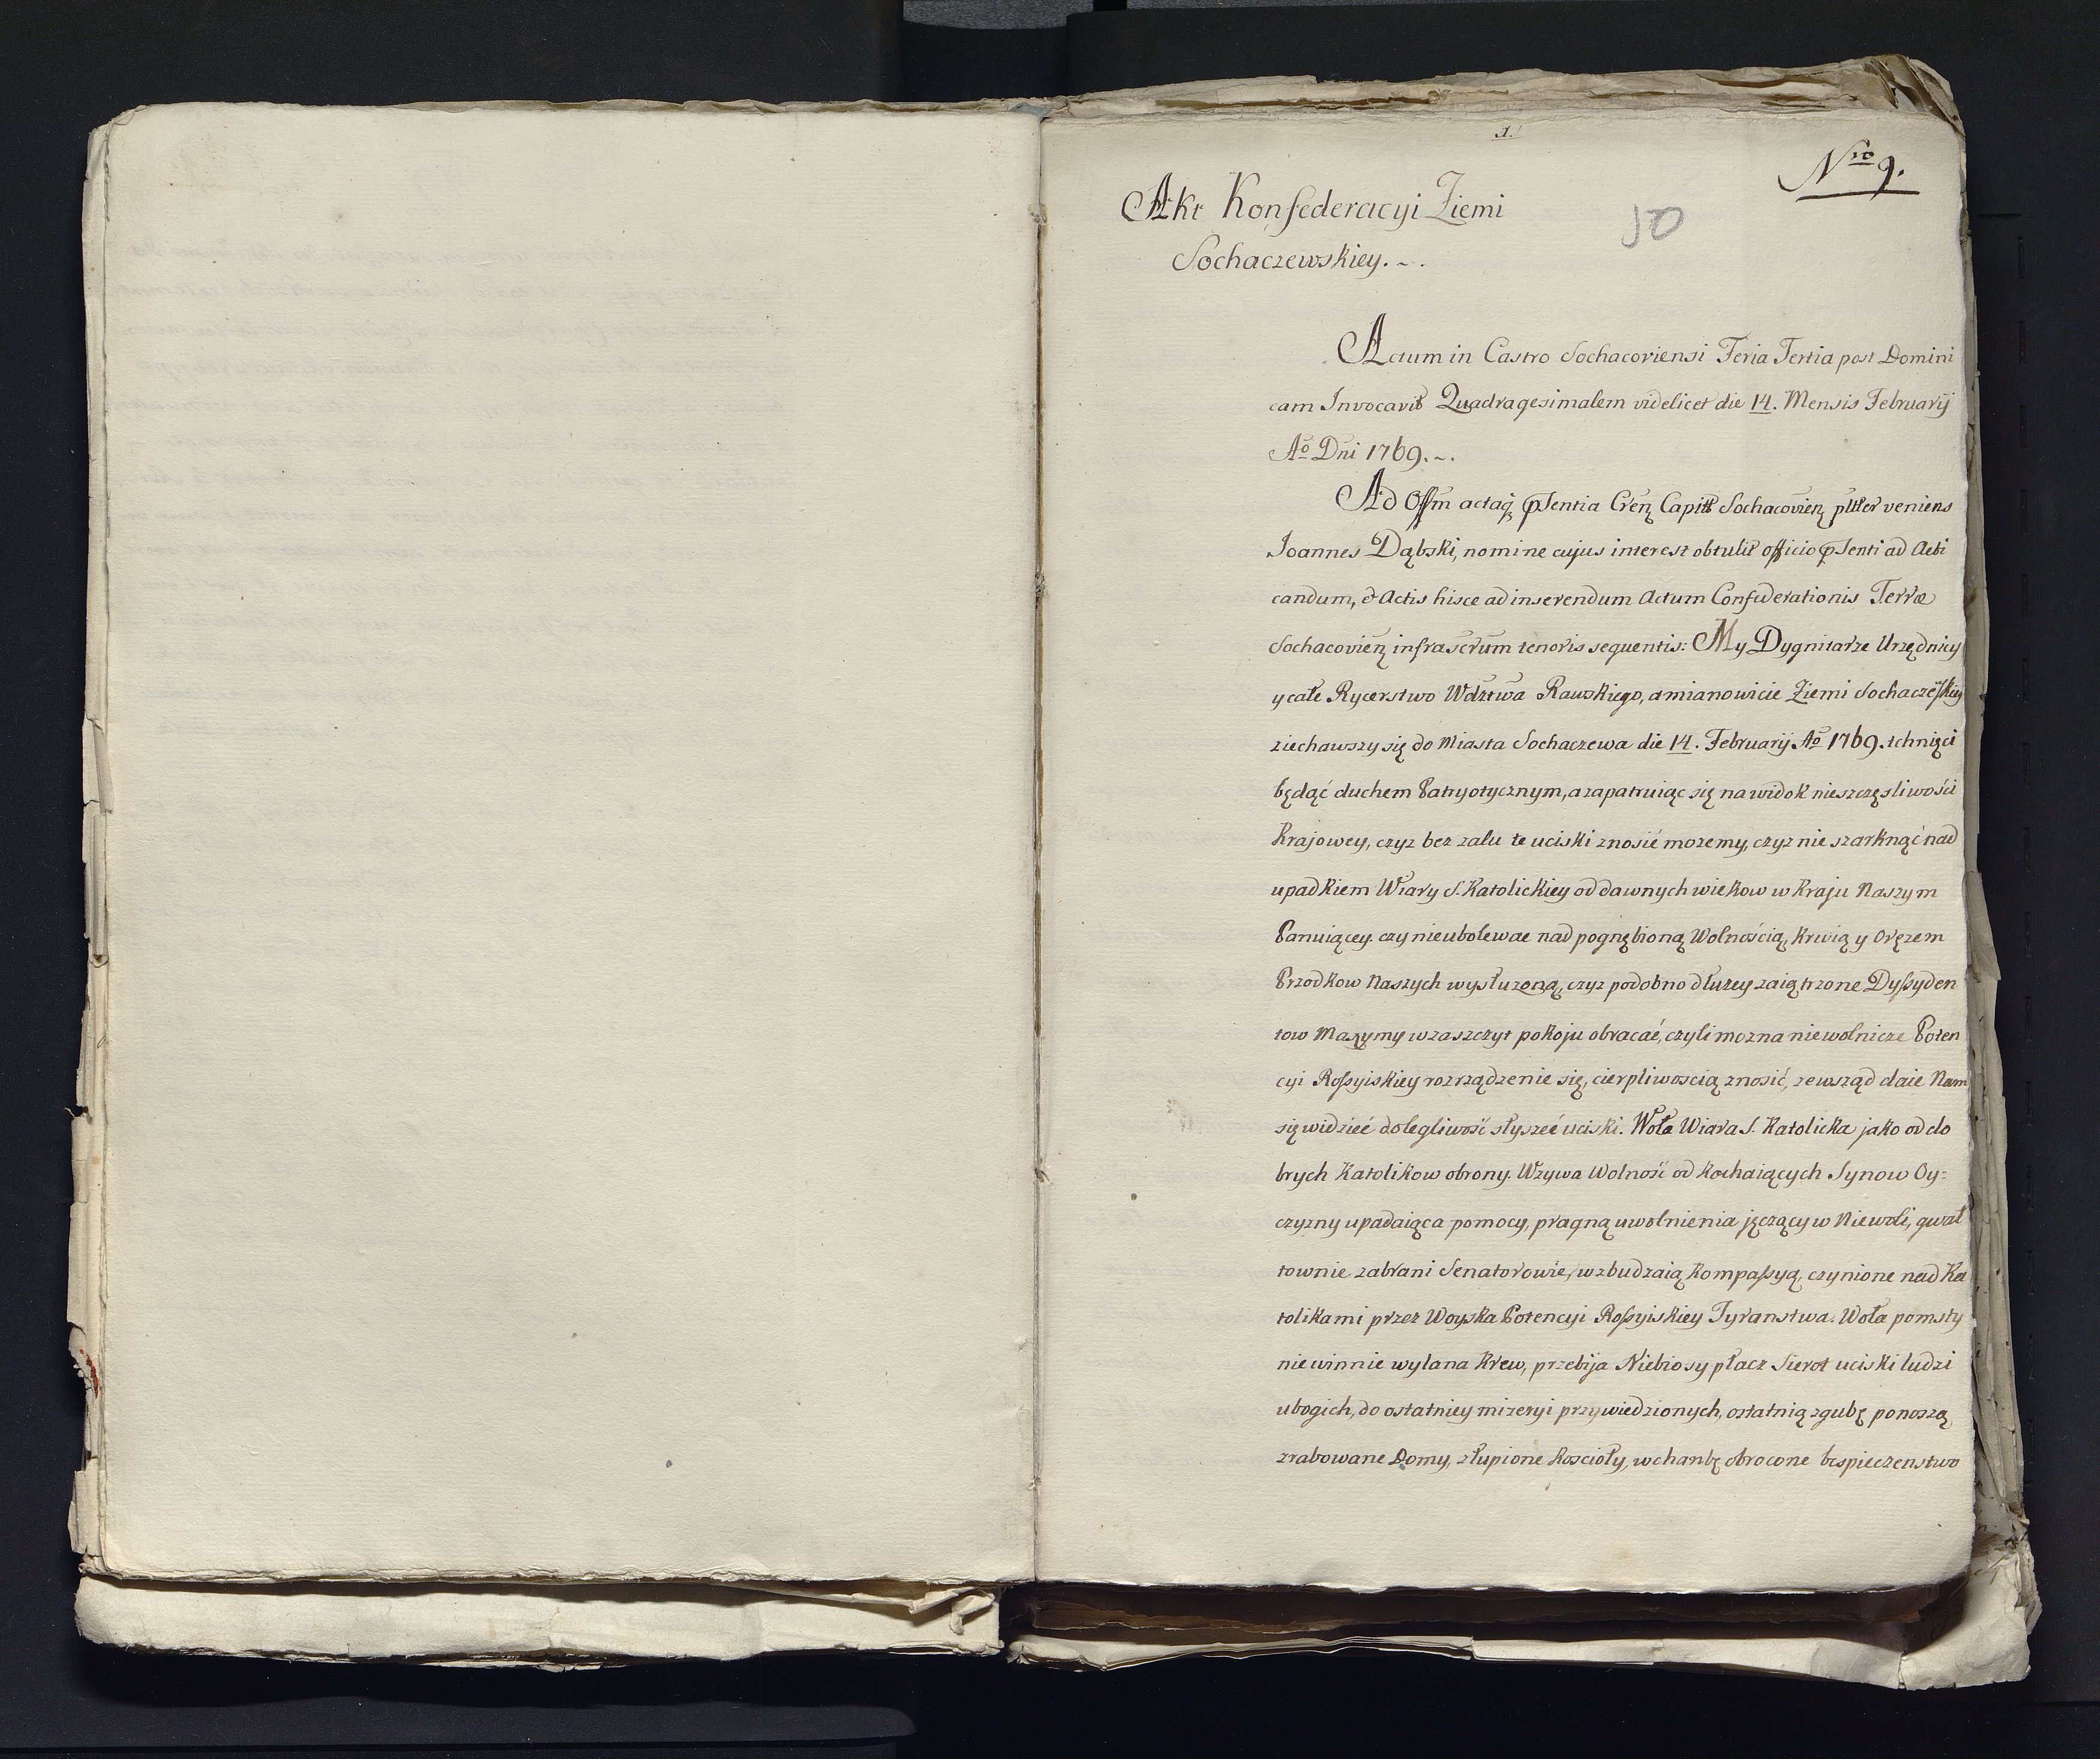 1.
Nro 9.
50
Akt Konfederacyi Ziemi
Sochaczewskiey. ~.
Actum in Castro Sochacoviensi Feria Tertia post Domini
cam Invocavit Quadragesimalem videlicet die 14. Mensis Februarij
Ao Dni 1769. ~.
Ad Offm actaq pSentia Cren Capitt Sochacovien plitter veniens
Joannes Dąbski, nomine cujus interest obtulit officio pSenti ad Acti
candum, & Actis hisce ad inserendum Actum Confæderationis Terræ
Sochacovien infrascrum tenoris sequentis: My Dygnitarze Urzędnicy
y całe Rycerstwo Wdztwa Rawskiego, a mianowicie Ziemi Sochaczeskiey
ziechawszy się do Miasta Sochaczewa die 14. Februarij Ao 1769. tchnięci
będąć duchem Patryotycznym, a zapatruiąc się na widok nieszczęsliwości
Krajowey, czyz bez zalu te uciski znosić mozemy, czyz nie szarknąć nad
upadkiem Wiary S. Katolickiey od dawnych wiekow w Kraju Naszym
Panuiącey. czy nieubolewac nad pognębioną Wolnością, Krwią y Oręzem
Przodkow Naszych wysłuzoną, czyz podobno dłuzey zaiątrzone Dyssyden
tow Maxymy w zaszczyt pokoju obracać, czyli mozna niewolnicze Poten
cyi Rossyiskiey rozrządzenie się, cierpliwoscią znosić, zewsząd daie Nam
się widzieć dolegliwość słyszeć uciski. Woła Wiara S. Katolicka jako od do
brych Katolikow obrony. Wzywa Wolność od Kochaiących Synow Oy=
czyzny upadaiąca pomocy, pragną uwolnienia jęczący w Niewoli, gwał
townie zabrani Senatorowie, wzbudzaią Kompassyą, czynione nad Ka
tolikami przez Woyska Potencyi Rossyiskiey Tyranstwa. Woła pomsty
niewinnie wylana Krew, przebija Niebiosy płacz Sierot uciski ludzi
ubogich, do ostatniey mizeryi przywiedzionych, ostatnią zgubę ponoszą
zrabowane Domy, złupione Koscioły, w chanbę obrocone bespieczenstwo